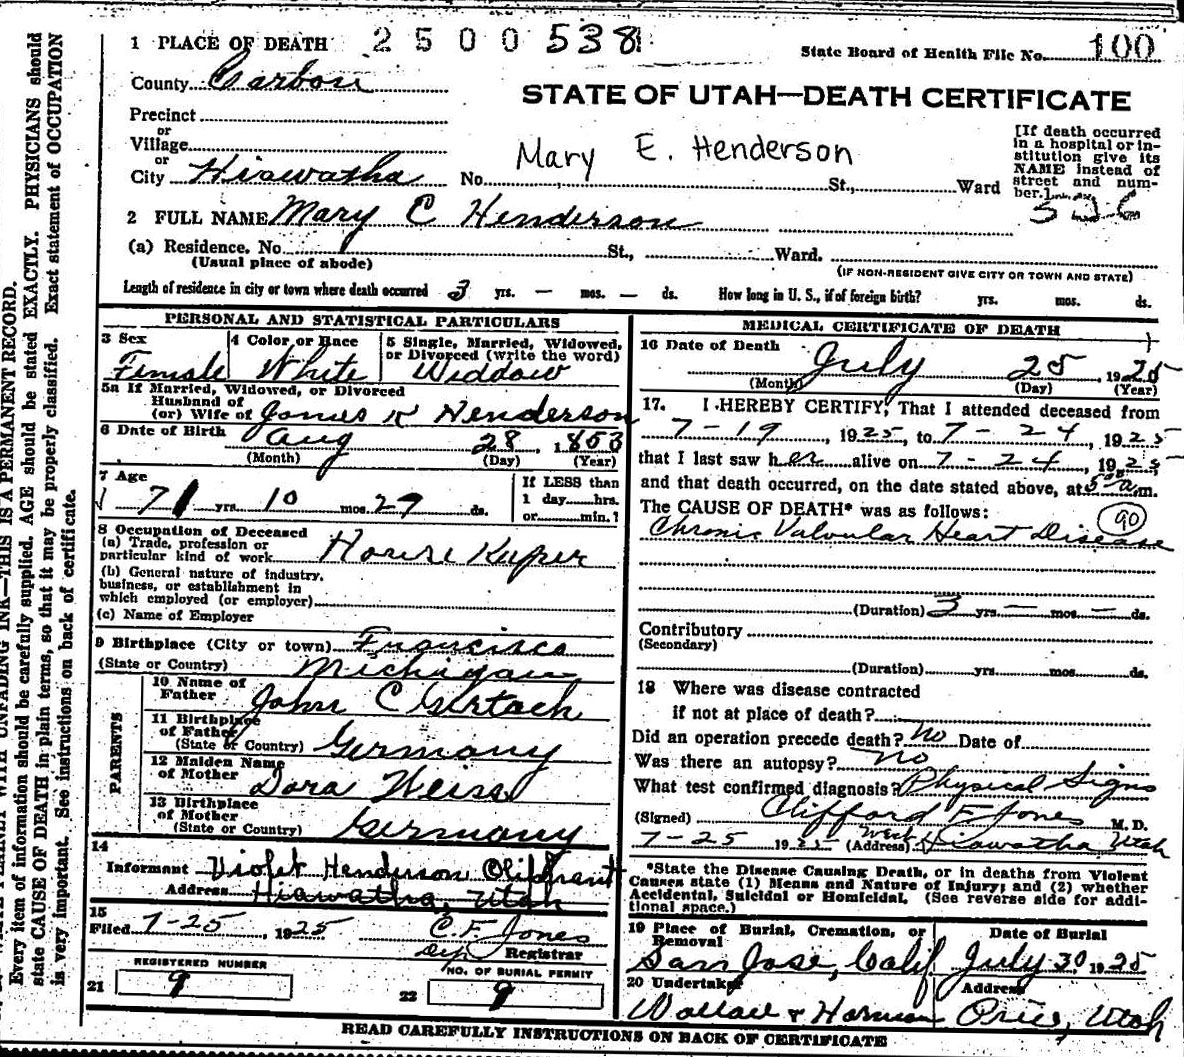 1 PLACE OF DEATH 2500538
State Board of Health File No. 100
County Carbon
STATE OF UTAH—DEATH CERTIFICATE
Precinct
or
Village
or
City Hiawatha No. St., Ward
Mary E. Henderson
[If death occurred in a hospital or institution give its NAME instead of street and number.]
2 FULL NAME Mary C Henderson
(a) Residence. No. St., Ward.
(Usual place of abode)
(IF NON-RESIDENT GIVE CITY OR TOWN AND STATE)
Length of residence in city or town where death occurred 3 yrs. — mos. — ds. How long in U. S., if of foreign birth? yrs. mos. ds.
PERSONAL AND STATISTICAL PARTICULARS
3 Sex 4 Color or Race 5 Single, Married, Widowed, or Divorced (write the word)
Female White Widdow
5a If Married, Widowed, or Divorced
Husband of
(or) Wife of James K Henderson
6 Date of Birth Aug 28, 1853
(Month) (Day) (Year)
7 Age
71 yrs. 10 mos. 27 ds.
If LESS than 1 day hrs. or min.?
8 Occupation of Deceased
(a) Trade, profession or particular kind of work House Keper
(b) General nature of industry, business, or establishment in which employed (or employer)
(c) Name of Employer
9 Birthplace (City or town) Francisco
(State or Country) Michigan
PARENTS
10 Name of Father John C Gertach
11 Birthplace of Father (State or Country) Germany
12 Maiden Name of Mother Dora Weiss
13 Birthplace of Mother (State or Country) Germany
14
Informant Violet Henderson Oliphant
Address Hiawatha, Utah
15
Filed 7-25, 1925 C. F. Jones
Dep Registrar
REGISTERED NUMBER
21 9
NO. OF BURIAL PERMIT
22 9
MEDICAL CERTIFICATE OF DEATH
16 Date of Death
July 25, 1925
(Month) (Day) (Year)
17. I HEREBY CERTIFY, That I attended deceased from
7-19, 1925, to 7-24, 1925
that I last saw her alive on 7-24, 1925,
and that death occurred, on the date stated above, at 5 a m.
The CAUSE OF DEATH* was as follows: 90
Chronic Valvular Heart Disease
(Duration) 3 yrs. — mos. — ds.
Contributory
(Secondary)
(Duration) yrs. mos. ds.
18 Where was disease contracted
if not at place of death?
Did an operation precede death? No Date of
Was there an autopsy? No
What test confirmed diagnosis? Physical Signs
(Signed) Clifford F. Jones M. D.
7-25 1925 (Address) West Hiawatha Utah
*State the Disease Causing Death, or in deaths from Violent
Causes state (1) Means and Nature of Injury; and (2) whether
Accidental, Suicidal or Homicidal. (See reverse side for additional space.)
19 Place of Burial, Cremation, or Removal Date of Burial
San Jose, Calif. July 30 1925
20 Undertaker Address
Wallace & Harmon Price, Utah
READ CAREFULLY INSTRUCTIONS ON BACK OF CERTIFICATE
INK—THIS IS A PERMANENT RECORD.
Every item of information should be carefully supplied. AGE should be stated EXACTLY. PHYSICIANS should
state CAUSE OF DEATH in plain terms, so that it may be properly classified. Exact statement of OCCUPATION
is very important. See instructions on back of certificate.